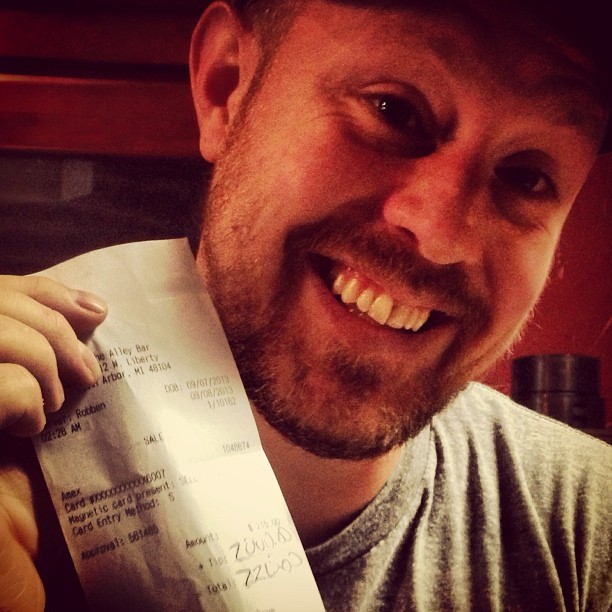 Alley Bar
W. Liberty
Arbor, MI 48104
DOB: 09/07/2013
09/08/2013
1/10162
Robben
02:28 AM
SALE
1048674
Amex
Card #XXXXXXXXXXX6007
Magnetic card present:
Card Entry Method: S
Approval:
Amount:
+ Tip:
Total